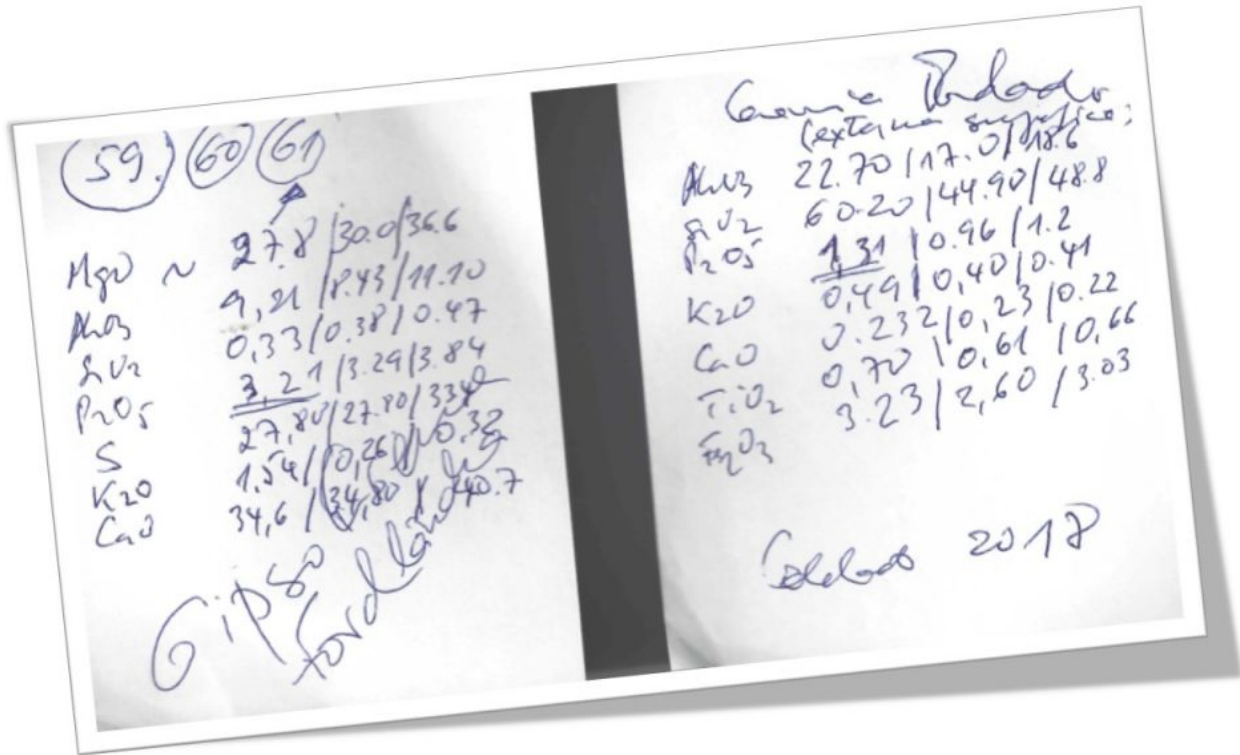 59. 60 61
MgO ~ 27.8 / 30.0 / 36.6
Al2O3 9,21 / 8.43 / 11.10
SiO2 0,33 / 0.38 / 0.47
P2O5 3,21 / 3.29 / 3.84
S 27,80 / 27.80 /
K2O 1,54 / 0,26 / 0,33
CaO 34,6 / 34,80 / 40.7
Gipso
(externa
Al2O3 22.70 / 17.0 / 18.6
SiO2 60.20 / 44.90 / 48.8
P2O5 1,31 / 0.96 / 1.2
K2O 0,49 / 0,40 / 0.41
CaO 0.232 / 0,23 / 0.22
TiO2 0,70 / 0,61 / 0,66
Fe2O3 3.23 / 2,60 / 3.03
2018